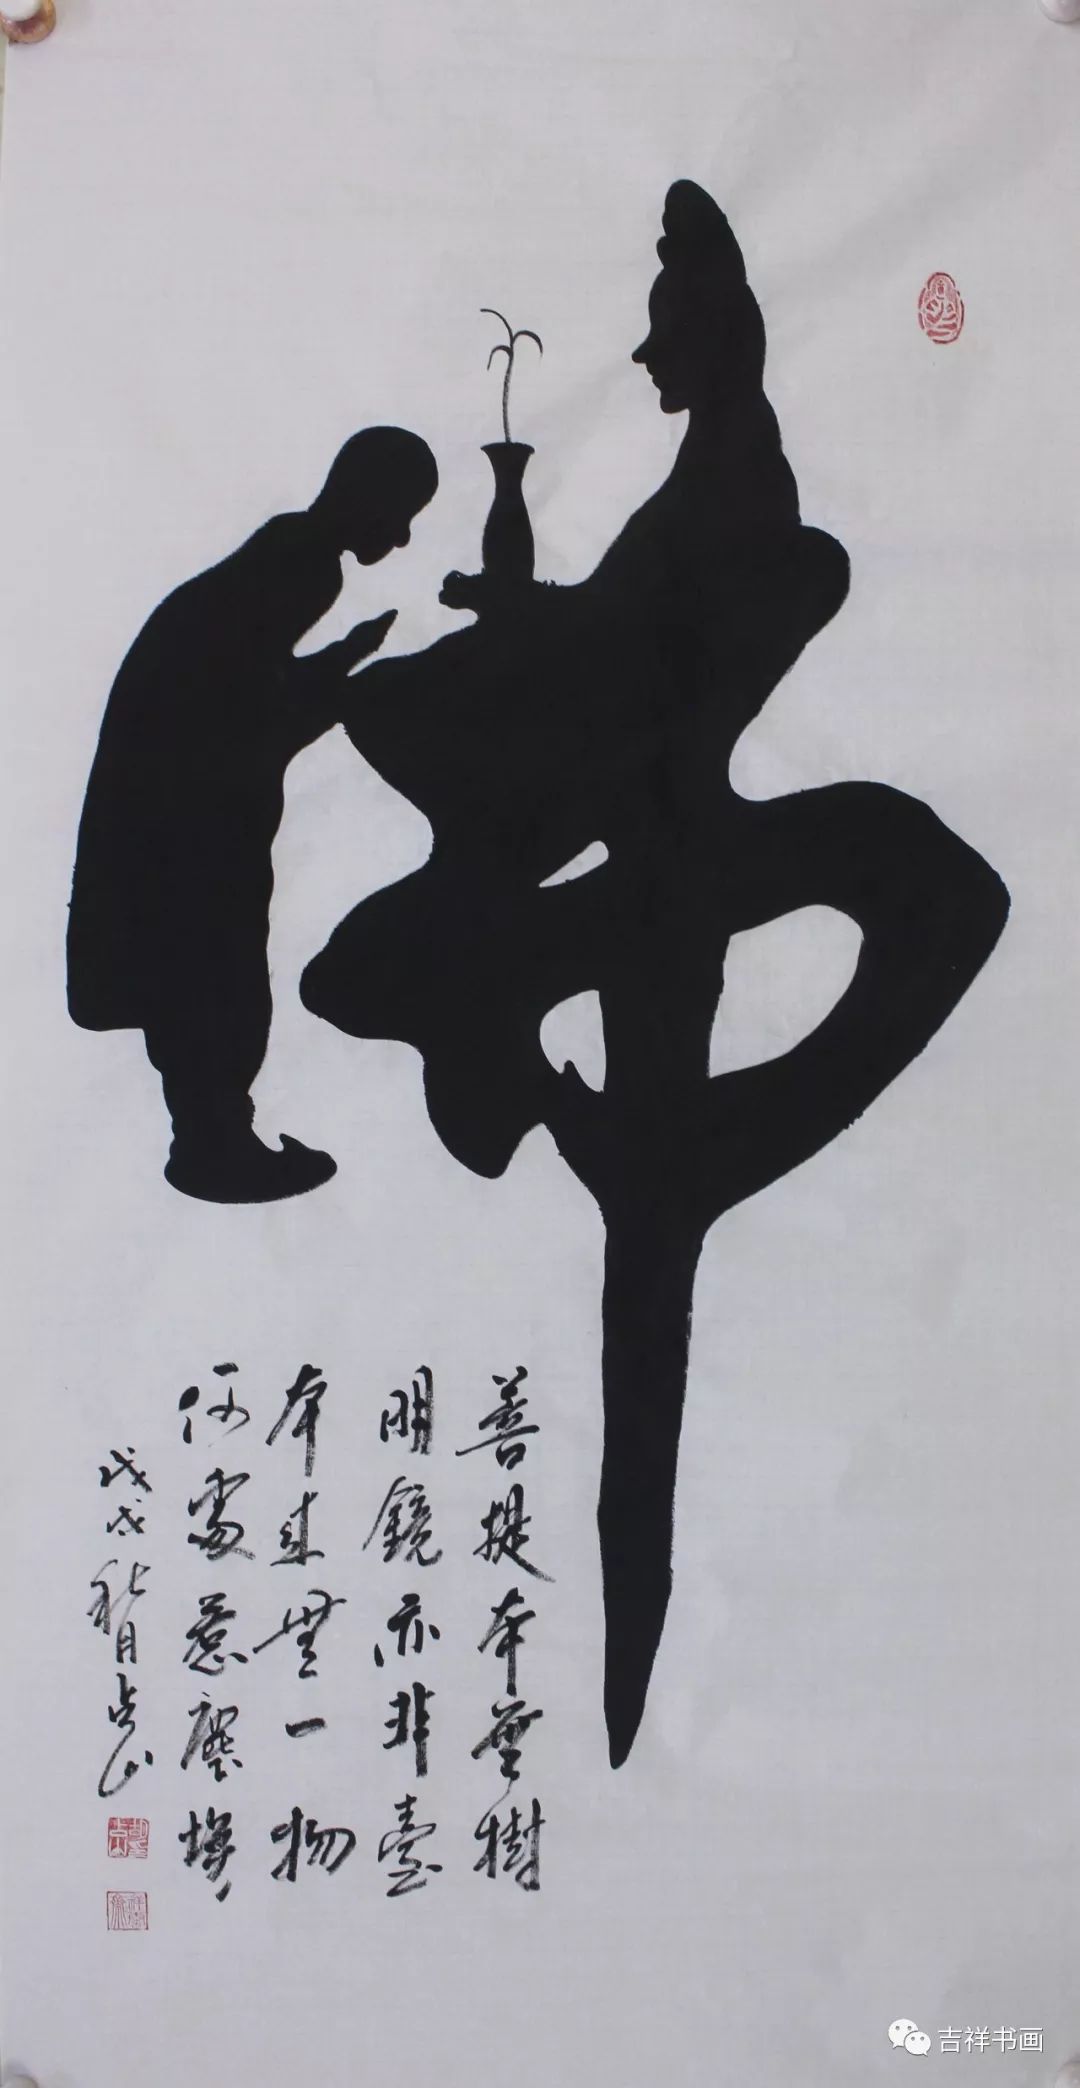 佛
菩提本無樹
明鏡亦非臺
本來無一物
何處惹塵埃
戊戌秋月吉山
吉祥书画